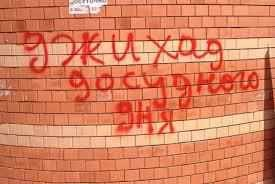 джихад
досудного
дня